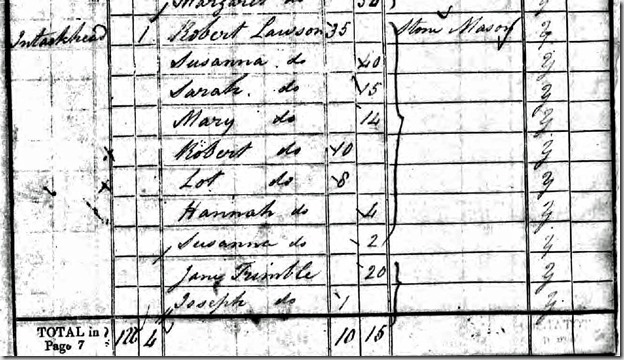 Margaret do
Intackhead 1 Robert Lawson 35 Stone Mason y
Susanna do 40 y
Sarah do 15 y
Mary do 14 y
Robert do 10 y
Lot do 8 y
Hannah do 4 y
Susanna do 2 y
Jane Trimble 20 y
Joseph do 1 y
TOTAL in } Page 7 4 10 15